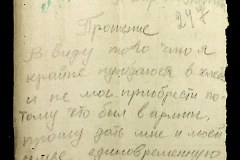 247
Прошение
В виду того что я
крайне нуждаюся в хлебе
и не мог приобрести по-
тому что был в армии,
прошу дать мне и моей
единовременную